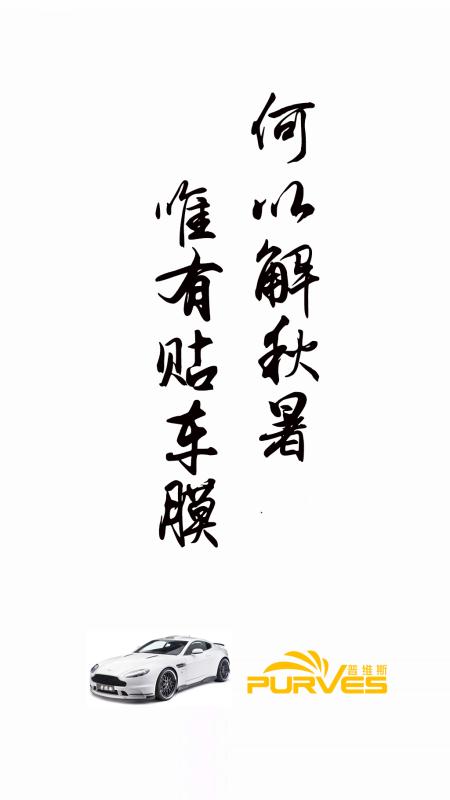 何以解秋暑
唯有贴车膜
普维斯
PURVES